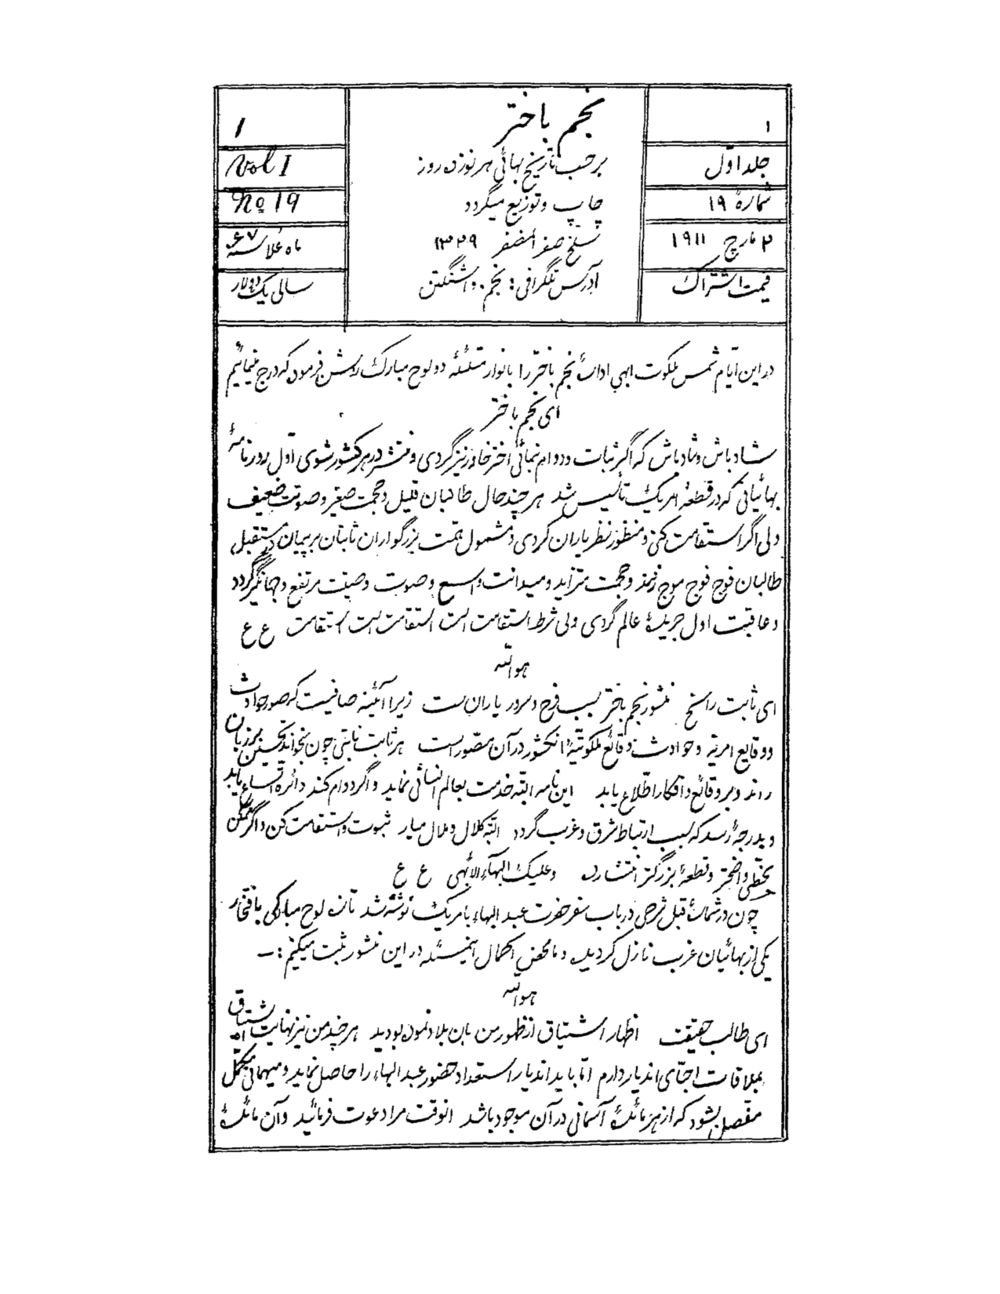 ۱
نجم باختر
1
جلد اوّل
برحسب تاریخ بهائی هر نوزده روز
Vol I
شمارهٔ ۱۹
چاپ و توزیع میگردد
No 19
۲ مارچ ۱۹۱۱
سلخ صفر المضفر ۱۳۲۹
ماه علاء سنه ۶۷
قیمت اشتراک
آدرس تلگرافی: نجم، واشنگتن
سالی یک دولار
در این ایّام شمس ملکوت ابهی ادارهٔ نجم باختر را بانوار متلئلئهٔ دو لوح مبارک روشن فرمود که درج مینمائیم
ای نجم باختر
شاد باش و شاد باش که اگر ثبات و دوام نمائی اختر خاور نیز گردی و منتشر در هر کشور شوی اوّل روزنامهٔ
بهائیانی که در قطعهٔ امریک تأسیس شد هر چند حال طالبان قلیل و حجمت صغیر و صوتت ضعیف
ولی اگر استقامت کنی و منظور نظر یاران گردی و مشمول همّت بزرگواران ثابتان بر پیمان در مستقبل
طالبان فوج فوج موج زند و حجمت متزاید و میدانت وسیع و صوت و صیتت مرتفع و جهانگیر گردد
و عاقبت اول جریدهٔ عالم گردی ولی شرط استقامت است استقامت است استقامت ع ع
هوالله
ای ثابت راسخ منشور نجم باختر سبب فرح و سرور یاران است زیرا آئینه صافیست که صور حوادث
و وقایع امریه و حوادث و وقائع ملکوتیهٔ آنکشور در آن مصوّر است هر ثابت نابتی چون بخواند تحسین بر زبان
راند و بر وقائع و افکار اطلاع یابد این نامه البته خدمت بعالم انسانی نماید و اگر دوام کند دائره اتّساع یابد
و بدرجهٔ رسد که سبب ارتباط شرق و غرب گردد البته کلال و ملال میار ثبوت و استقامت کن و اگر ممکن
بخطّی واضحتر و قطعهٔ بزرگتر انتشار ده و علیک البهآء الأبهی ع ع
چون در شمارهٔ قبل شرحی در باب سفر حضرت عبدالبهاء بامریک نوشته شد تازه لوح مبارکی بافتخار
یکی از بهائیان غرب نازل گردیده و ما محض اکمال این مسئله در این منشور ثبت میکنیم :ـ
هوالله
ای طالب حقیقت اظهار اشتیاق از ظهور من بان بلاد نموده بودید هر چند من نیز نهایت اشتیاق
بملاقات احبّای اندیار دارم امّا باید اندیار استعداد حضور عبدالبهاء را حاصل نماید و میهمانی مکمّل
مفصّل بشود که از هر مائدهٔ آسمانی در آن موجود باشد انوقت مرا دعوت فرمائید و آن مائدهٔ